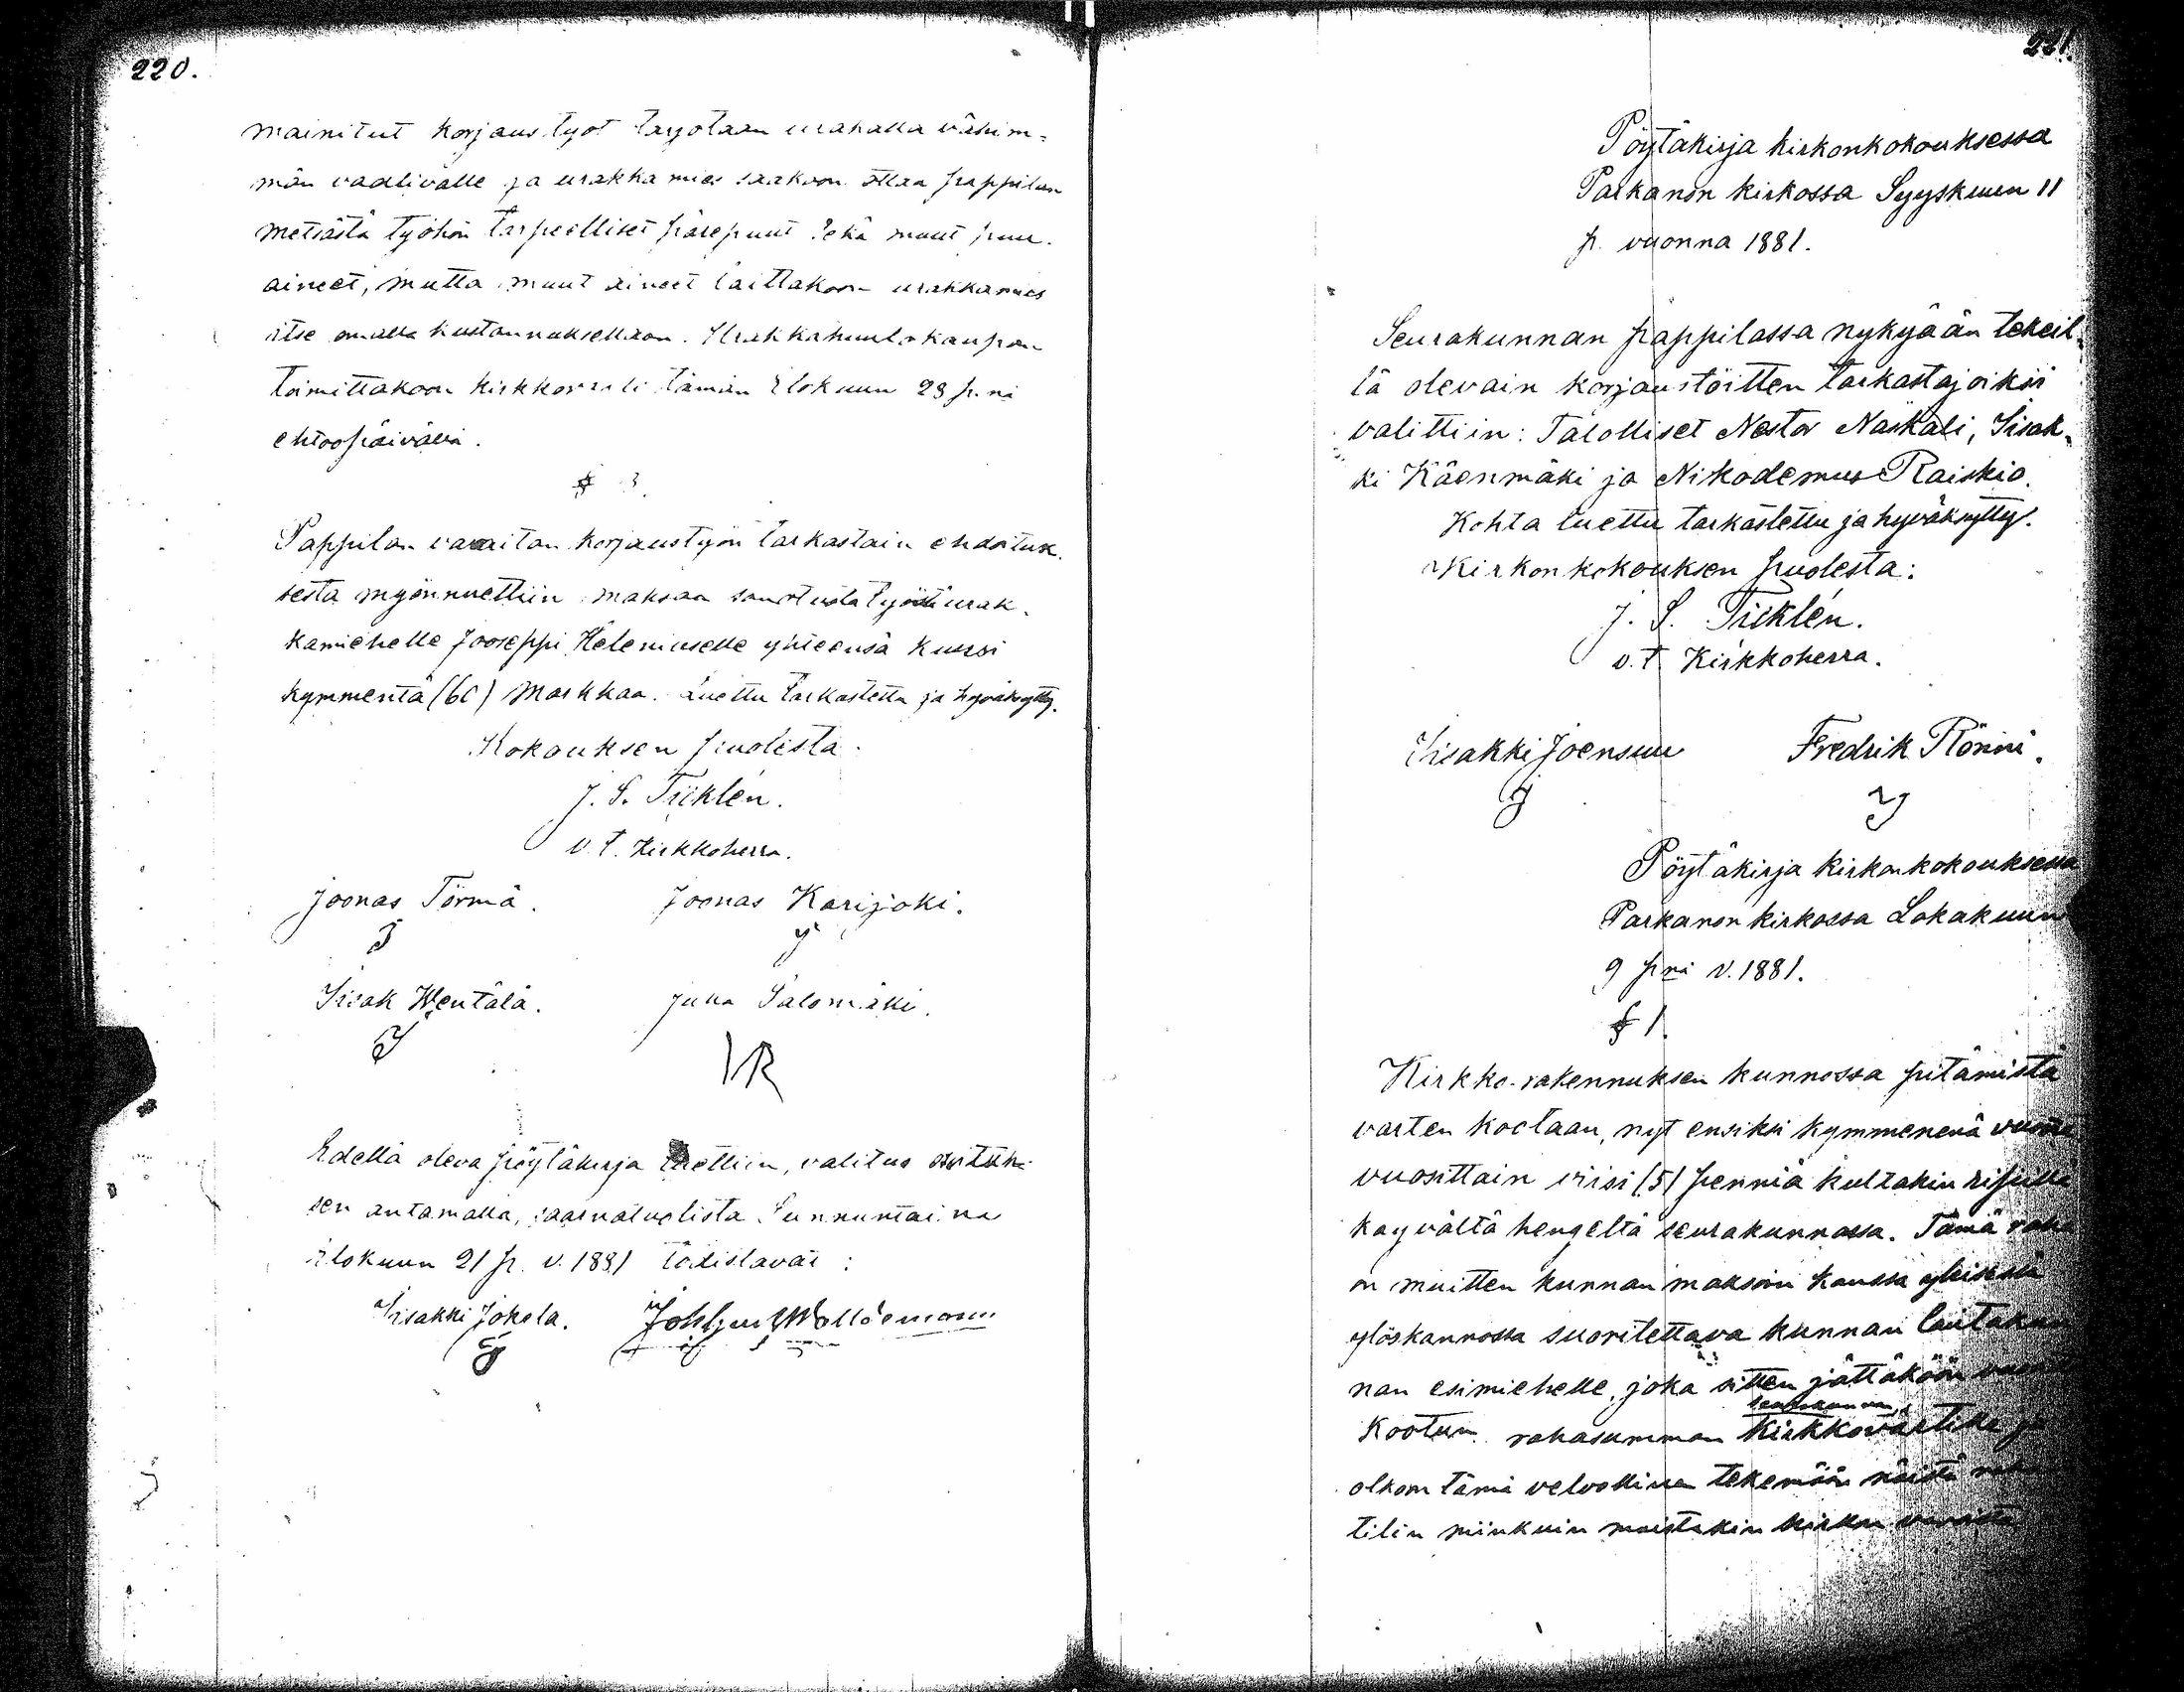 220.
mainitut korjaustyöt tarjotaan urakalla vähim-
män vaativalle ja urakkamies saakoon ottaa pappilan
metsästä työhön tarpeelliset pärepuut sekä muut puu-
aineet, mutta muut aineet laittakoon urakkamies
itse omalla kustannuksellaan. Urakkahuutokaupan
toimittakoon kirkkoraati tämän Elokuun 23 p. nä
ehtoopäivällä.
§ 3.
Pappilan navaitan korjaustyön tarkastain ehdotuk-
sesta myönnettiin maksaa sanotusta työstä urak-
kamiehelle Jooseppi Heleniuselle yhteensä kuusi
kymmentä (60) Markkaa. Luettu tarkastettu ja hyväksytty.
Kokouksen puolesta.
J. S. Ticklén.
v. t. Kirkkoherra.
Joonas Törmä. Joonas Karijoki.
Iisak Wentälä. Juha Salomäki.
Edellä oleva pöytäkirja luettiin, valitus
sen antamalla, saarnatuolista Sunnuntaina
Elokuun 21 p. v. 1881 todistavat:
Iisakki Jokela.
221.
Pöytäkirja kirkonkokouksessa
Parkanon kirkossa Syyskuun 11
p. vuonna 1881.
Seurakunnan pappilassa nykyään tekeil-
lä olevain korjaustöitten tarkastajoiksi
valittiin: Talolliset Nestor Näskäli, Iisak-
ki Käenmäki ja Nikodemus Raiskio.
Kohta luettu tarkastettu ja hyväksytty.
Kirkonkokouksen puolesta:
J. S. Ticklén.
v. t. Kirkkoherra.
Iisakki Joensuu Fredrik Rönni.
Pöytäkirja kirkonkokouksessa
Parkanon kirkossa Lokakuun
9 pnä v. 1881.
§ 1.
Kirkko-rakennuksen kunnossa pitämistä
varten kootaan, nyt ensiksi kymmenenä vuonna
vuosittain viisi (5) penniä kultakin ripillä
kayvältä hengeltä seurakunnassa. Tämä raha
on muitten kunnan maksoin kanssa yleisessä
ylöskannossa suoritettava kunnan lautakun
nan esimiehelle, joka sitten jättäköön
seurakunnan
Kootun rahasumman Kirkkovärtille ja
olkoon tämä velvollinen tekemään näistä
tilin niinkuin muistakin kirkon varoista